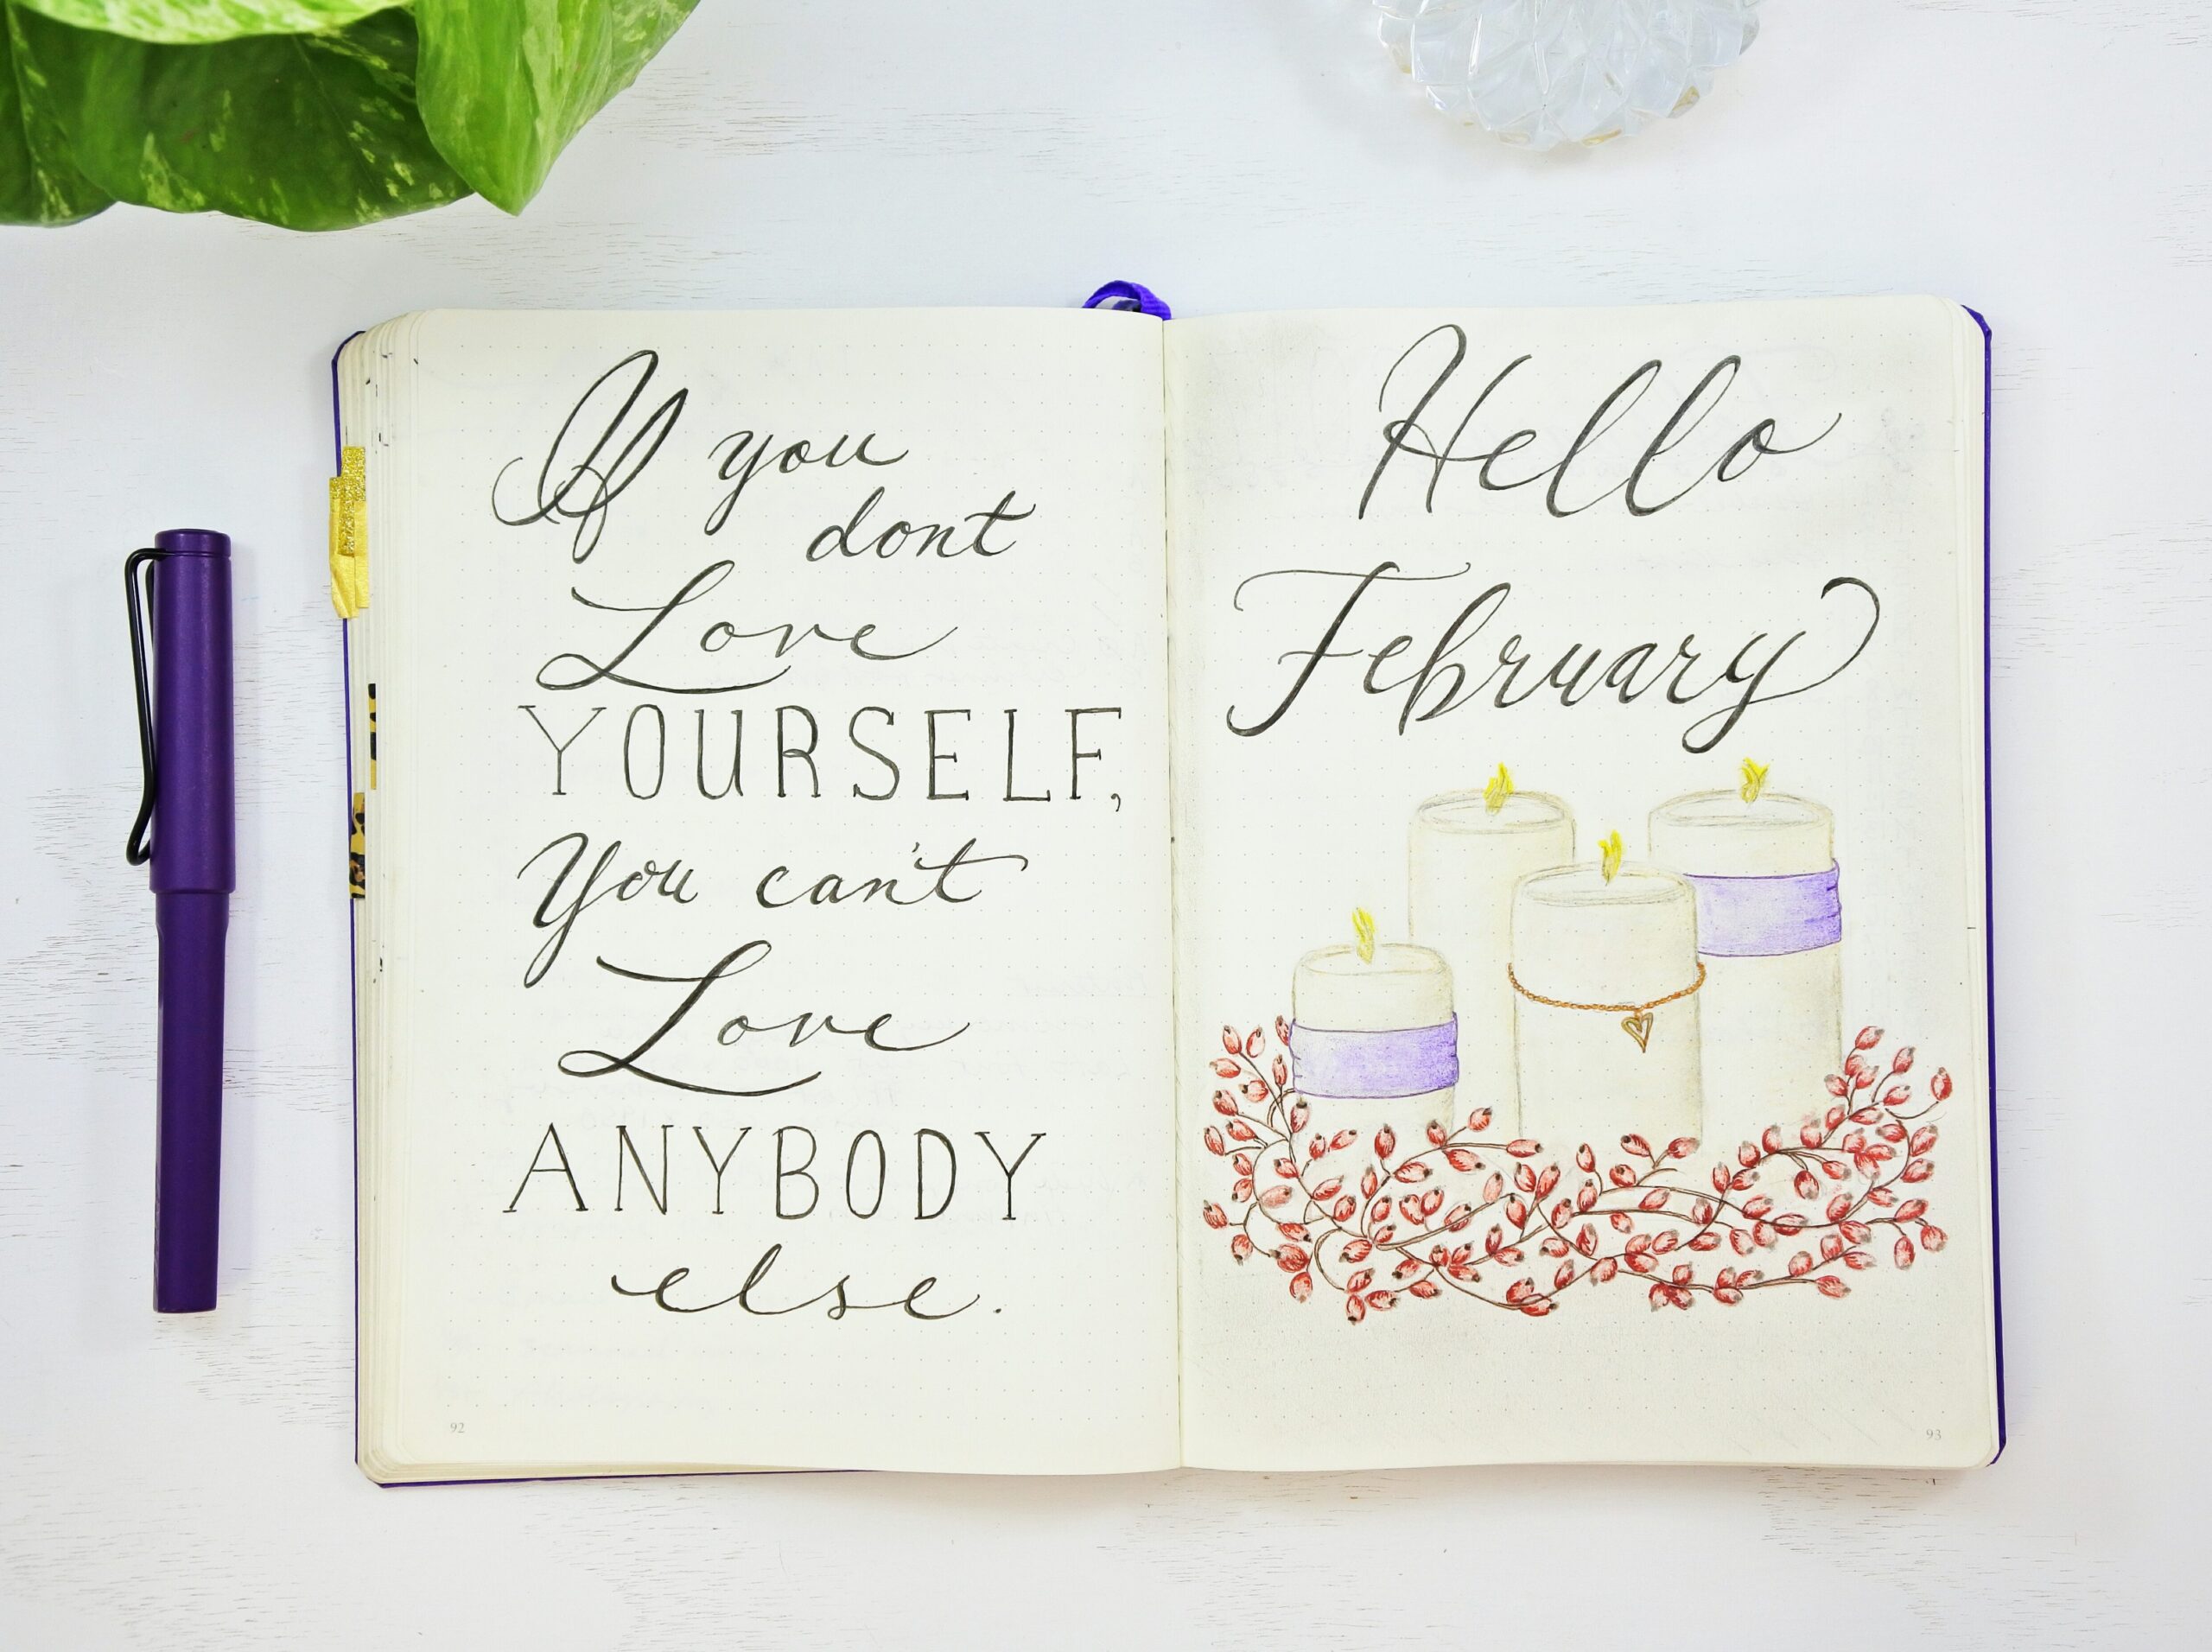 If you
dont
Love
YOURSELF,
You can't
Love
ANYBODY
else.
92
Hello
February
93